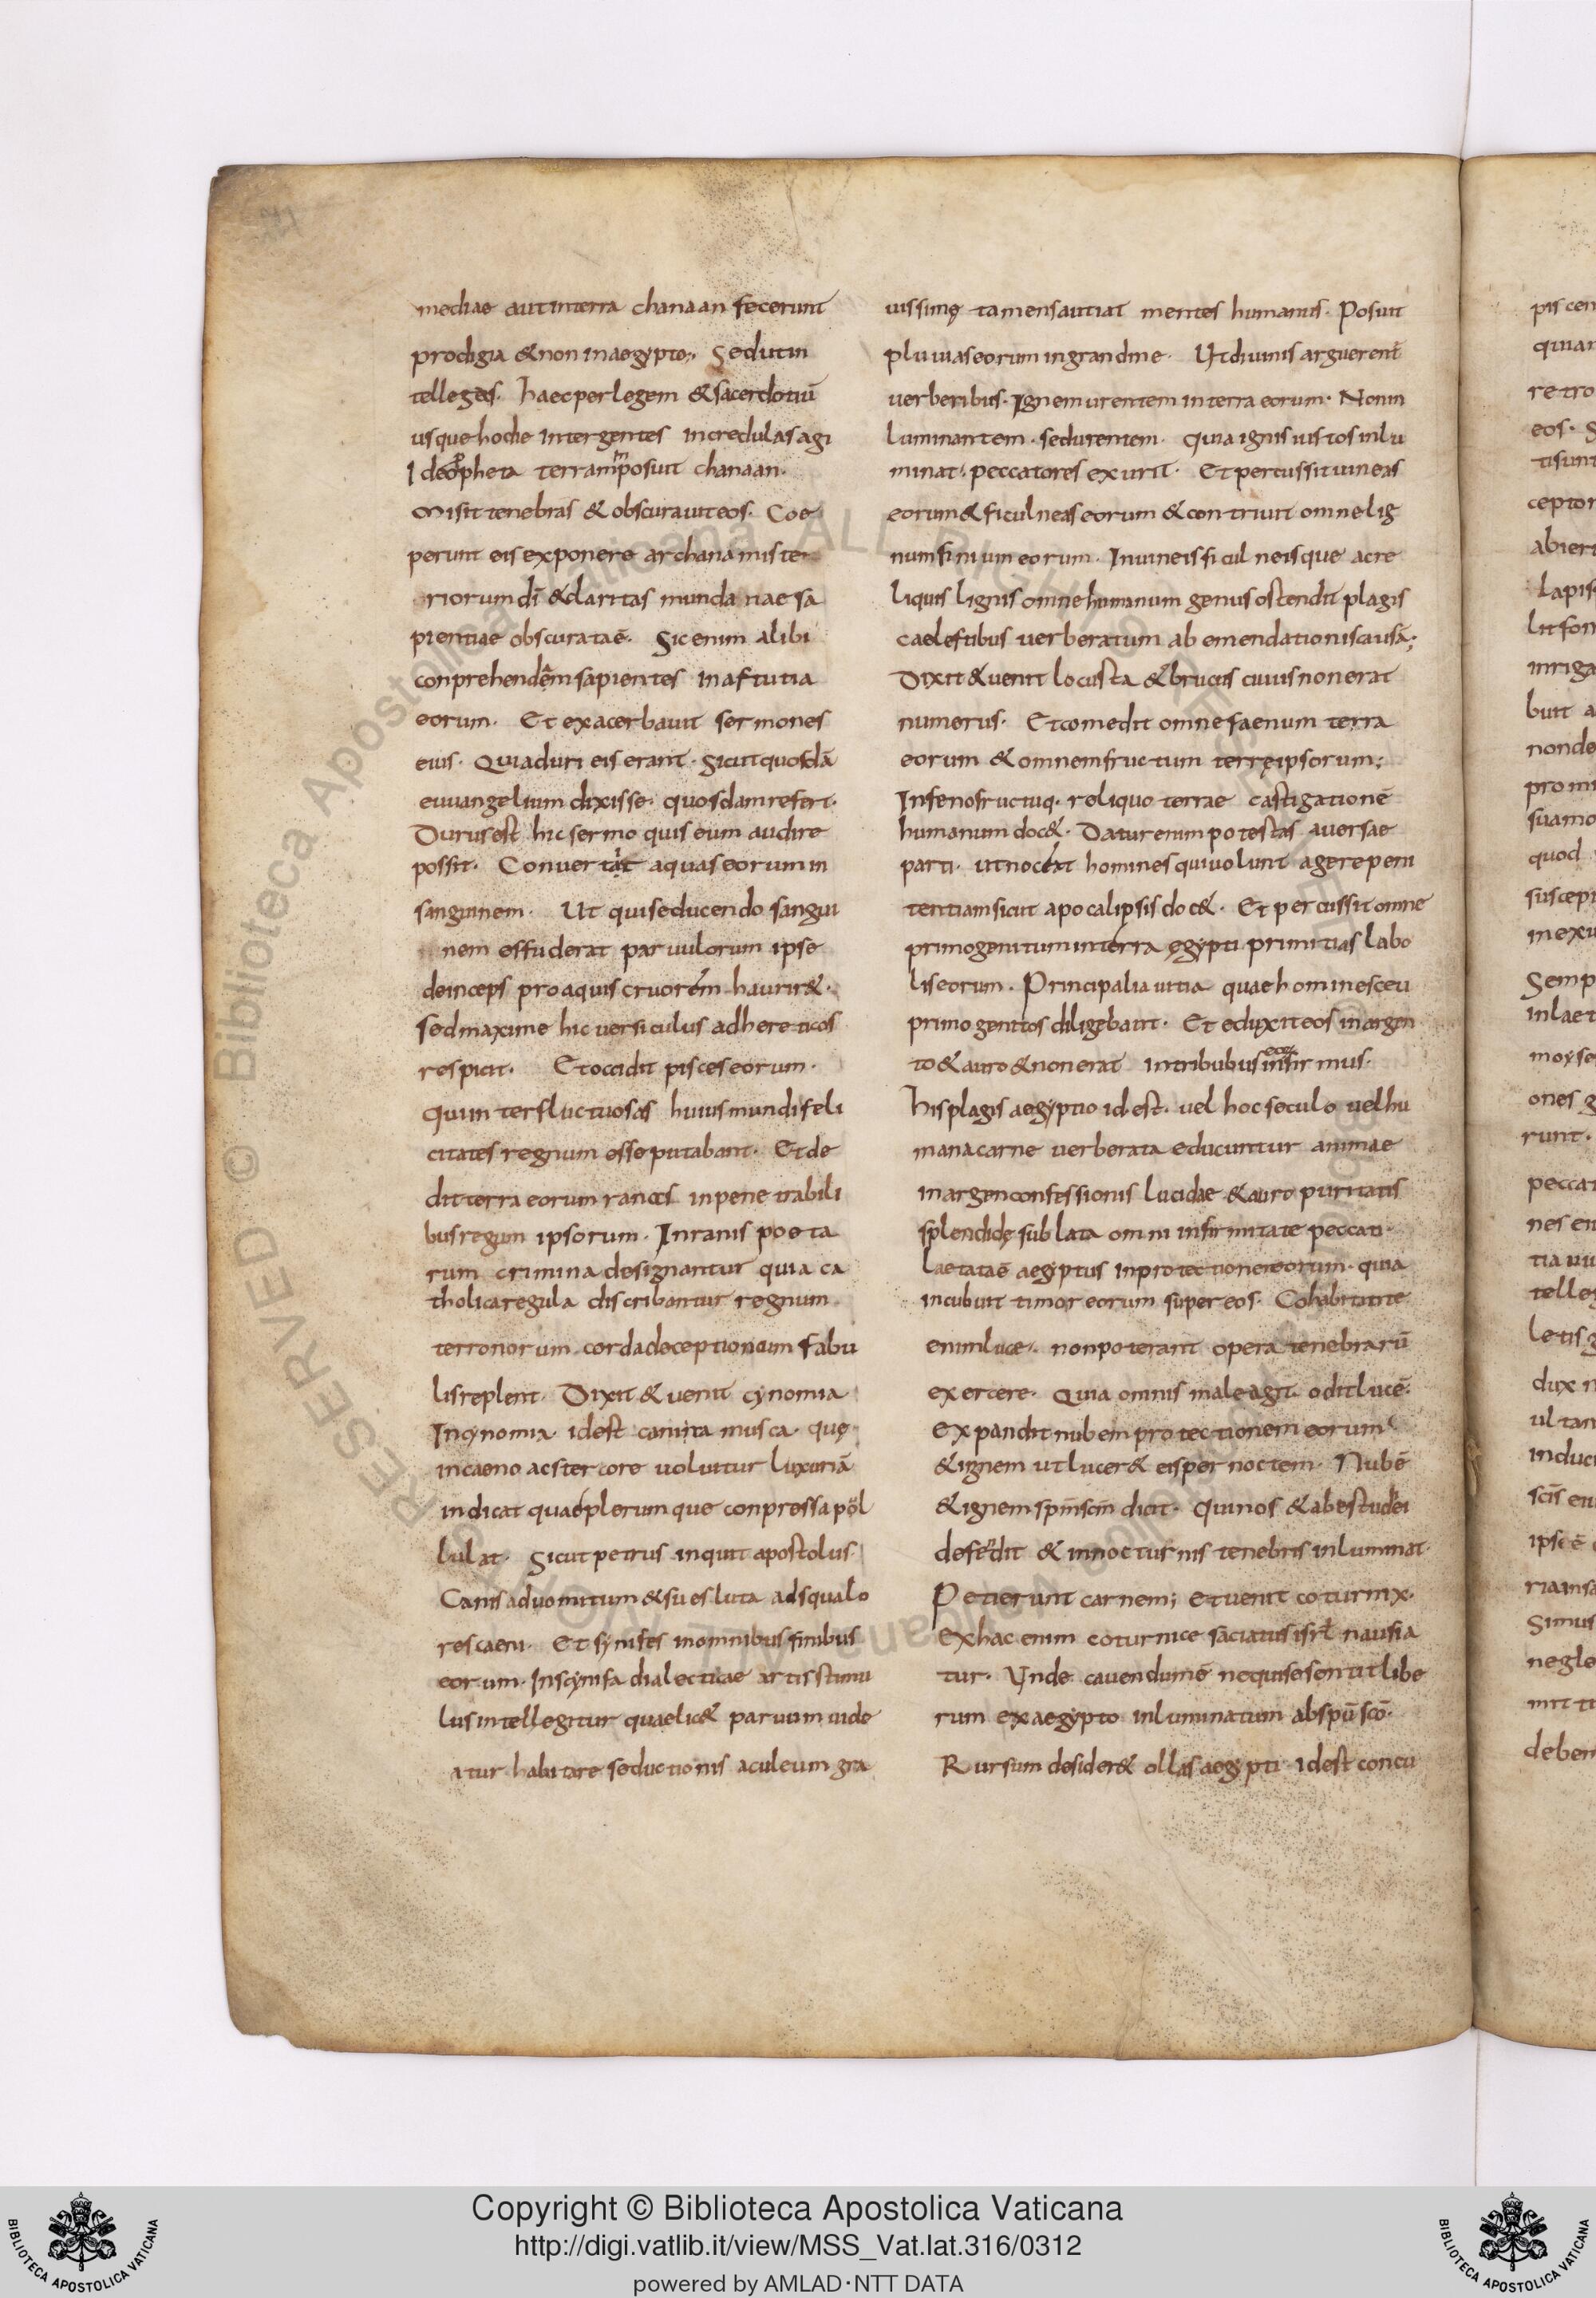 mediae aut interra chanaan fecerunt
prodigia & non in aegypto; Sed ut in
telleges. haec per legem & sacerdotiū
usque hodie intergentes incredulas agi
Ideo ꝓpheta terram posuit chanaan.
Misit tenebras & obscurauit eos. Coe
perunt eis exponere archana miste
riorum dī & claritas mundanae sa
pientiae obscurataē. Sic enim alibi
conprehendēm sapientes in astutia
eorum. Et exacerbauit sermones
eius. Quia duri eis erant. Sicut quosdā
euuangelium dixisse. quosdam refert.
Durus est hic sermo quis eum audire
possit. Conuertit aquas eorum in
sanguinem. Ut qui seducendo sangui
nem effuderat paruulorum ipse
deinceps pro aquis cruorem haurir&.
sed maxime hic uersiculus ad hereticos
respicit. Et occidit pisces eorum.
Qui inter fluctuosas huius mundi feli
citates regnum esse putabant. Et de
dit terra eorum ranas in penetrabili
bus regum ipsorum. In ranis poeta
rum crimina designantur quia ca
tholica regula discribantur regnum
terronorum corda deceptionum fabu
lis replent. Dixit & uenit cynomia
In cynomia. id est canina musca. quę
in caeno ac stercore uoluitur luxuriā
indicat quae plerumque conpressa pol
lulat. Sicut petrus inquit apostolus.
Canis ad uomitum & sues luta ad squalo
res caeni. Et synifes in omnibus finibus
eorum. In scynifa dialecticae artis stimu
lus intellegitur quae lic& paruum uide
atur habitare seductionis aculeum gra
uissimę tamen sautiat mentes humanis. Posuit
pluuias eorum in grandine. Ut diuinis arguerent̄
uerberibus. Ignem urentem in terra eorum. Non in
luminantem. sed urentem. Quia ignis iustos inlu
minat. peccatores exurit. Et percussit uineas
eorum & ficulneas eorum & contriuit omne lig
num finium eorum. In uineis ficulneisque ac re
liquis lignis omne humanum genus ostendit plagis
caelestibus uerberatum ab emendationis causā;
Dixit & uenit locusta & brucus cuius non erat
numerus. Et comedit omne faenum terra
eorum & omnem fructum terrę ipsorum;
In feno fructuq. reliquo terrae castigationē
humanum doc&. Datur enim potestas auersae
parti. ut noceat homines qui uolunt agere peni
tentiam sicut apocalipsis doc&. Et percussit omne
primogenitum in terra ęgypti primitias labo
lis eorum. Principalia uitia quae homines ceu
primogenitos diligebant. Et eduxit eos in argen
to & auro & non erat in tribubus eoꝝ infirmus.
His plagis aegyptio id est. uel hoc seculo uel hu
mana carne uerberata educuntur animae
in argen confessionis lucidae & auro puritatis
splendidę sublata omni infirmitate peccati.
Laetataē aegyptus in protectione eorum. quia
incubuit timor eorum super eos. Cohabitante
enim luce. non poterant opera tenebrarū
exercere. Quia omnis male agit odit lucē.
Expandit nubem protectionem eorum
& ignem ut lucer& eis per noctem. Nubē
& ignem spm̄ scm̄ dicit. Qui nos & ab estu diei
defendit & in nocturnis tenebris inluminat.
Petierunt carnem; et uenit coturnix.
Ex hac enim coturnice saciatus isrl̄ nausia
tur. Unde cauendumē ne qui se sentit libe
rum ex aegypto inluminatum ab spū scō.
Rursum desider& ollas aegypti id est concu
pis cen
quiar
re tro
eos. S
tisunt
ceptor
abier
Lapis
lit fon
inriga
buit a
nonde
promi
suamo
quod
suscep
in exu
Semp
in laet
moyse
ones g
runt.
peccat
nes en
tia uu
telleg
letis g
dux n
ul tan
induc
scīs eu
ipse ē
riam s
Simus
negle
mit ti
deben
© Biblioteca Apostolica Vaticana ALL RIGHTS RESERVED
Copyright © Biblioteca Apostolica Vaticana
http://digi.vatlib.it/view/MSS_Vat.lat.316/0312
powered by AMLAD·NTT DATA
BIBLIOTECA APOSTOLICA VATICANA
BIBLIOTECA APOSTOLICA VATICANA